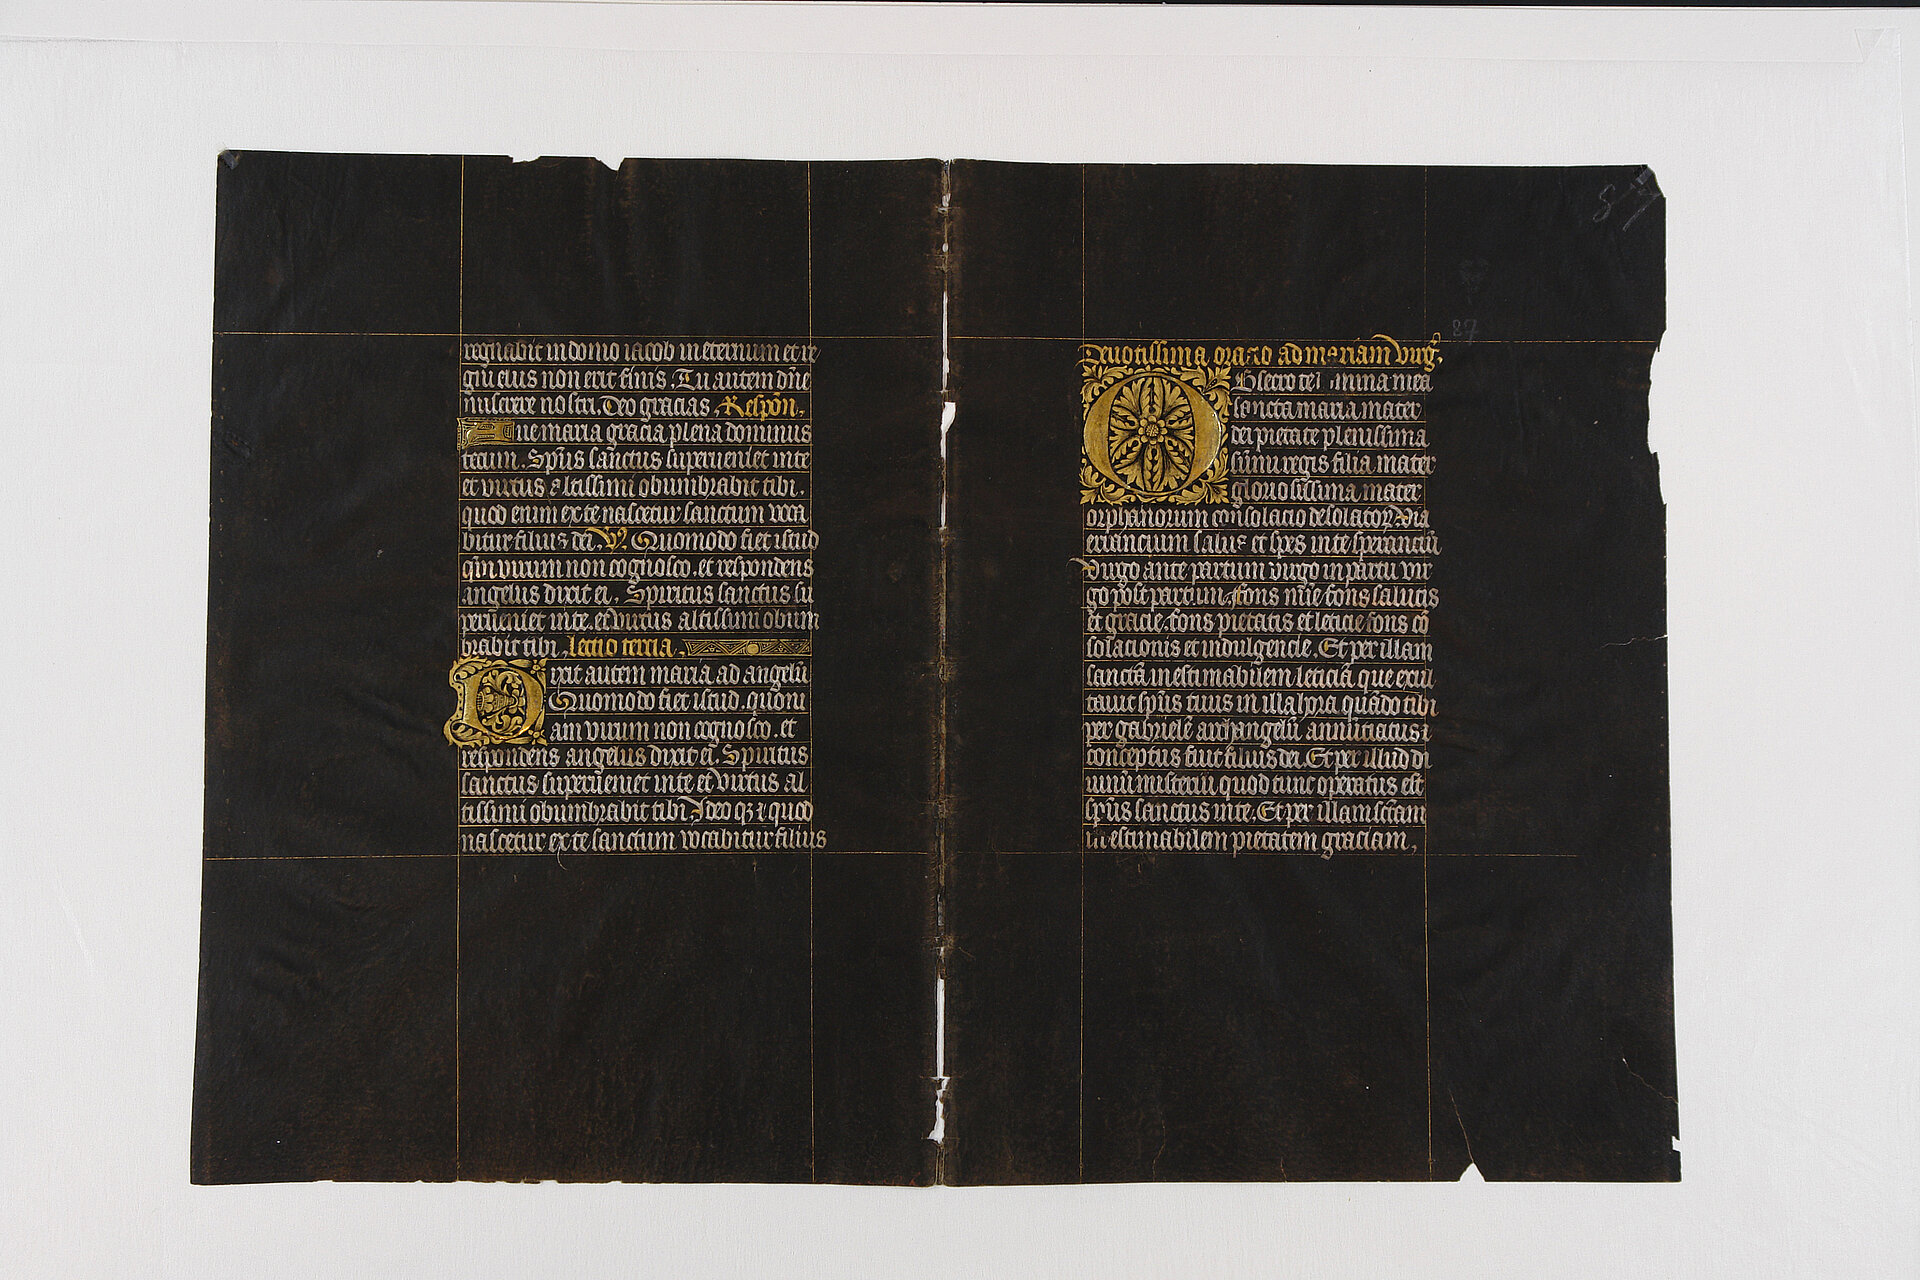 regnabit in domo iacob in eternum et re
gni eius non erit finis. Tu autem dñe
miserere nostri. Deo gracias. Respon.
Aue maria gracia plena dominus
tecum. Spũs sanctus superueniet in te
et virtus altissimi obumbrabit tibi.
quod enim ex te nascetur sanctum voca
bitur filius dei. V. Quomodo fiet istud
qm̃ virum non cognosco. et respondens
angelus dixit ei. Spiritus sanctus su
perueniet in te. et virtus altissimi obum
brabit tibi. Lectio tercia.
Dixit autem maria ad angelũ
Quomodo fiet istud. quoni
am virum non cognosco. et
respondens angelus dixit ei. Spiritus
sanctus superueniet in te et virtus al
tissimi obumbrabit tibi Ideo qz et quod
nascetur ex te sanctum vocabitur filius
87
Deuotissima oracio ad mariam virg̃.
Obsecro te domina mea
sancta maria mater
dei pietate plenissima
sũmi regis filia mater
gloriosissima mater
orphanorum consolacio desolatoꝝ. via
errancium salus et spes in te speranciũ
virgo ante partum virgo in partu vir
go post partum. fons mĩe fons salutis
et gracie. fons pietatis et leticie fons cõ
solacionis et indulgencie. Et per illam
sanctã inestimabilem leticiã que exul
tauit spũs tuus in illa hora quãdo tibi
per gabrielẽ archangelũ annũciatus ⁊
conceptus fuit filius dei. Et per illud di
uinũ misteriũ quod tunc operatus est
spũs sanctus in te. Et per illam sctãm
inestimabilem pietatem graciam.